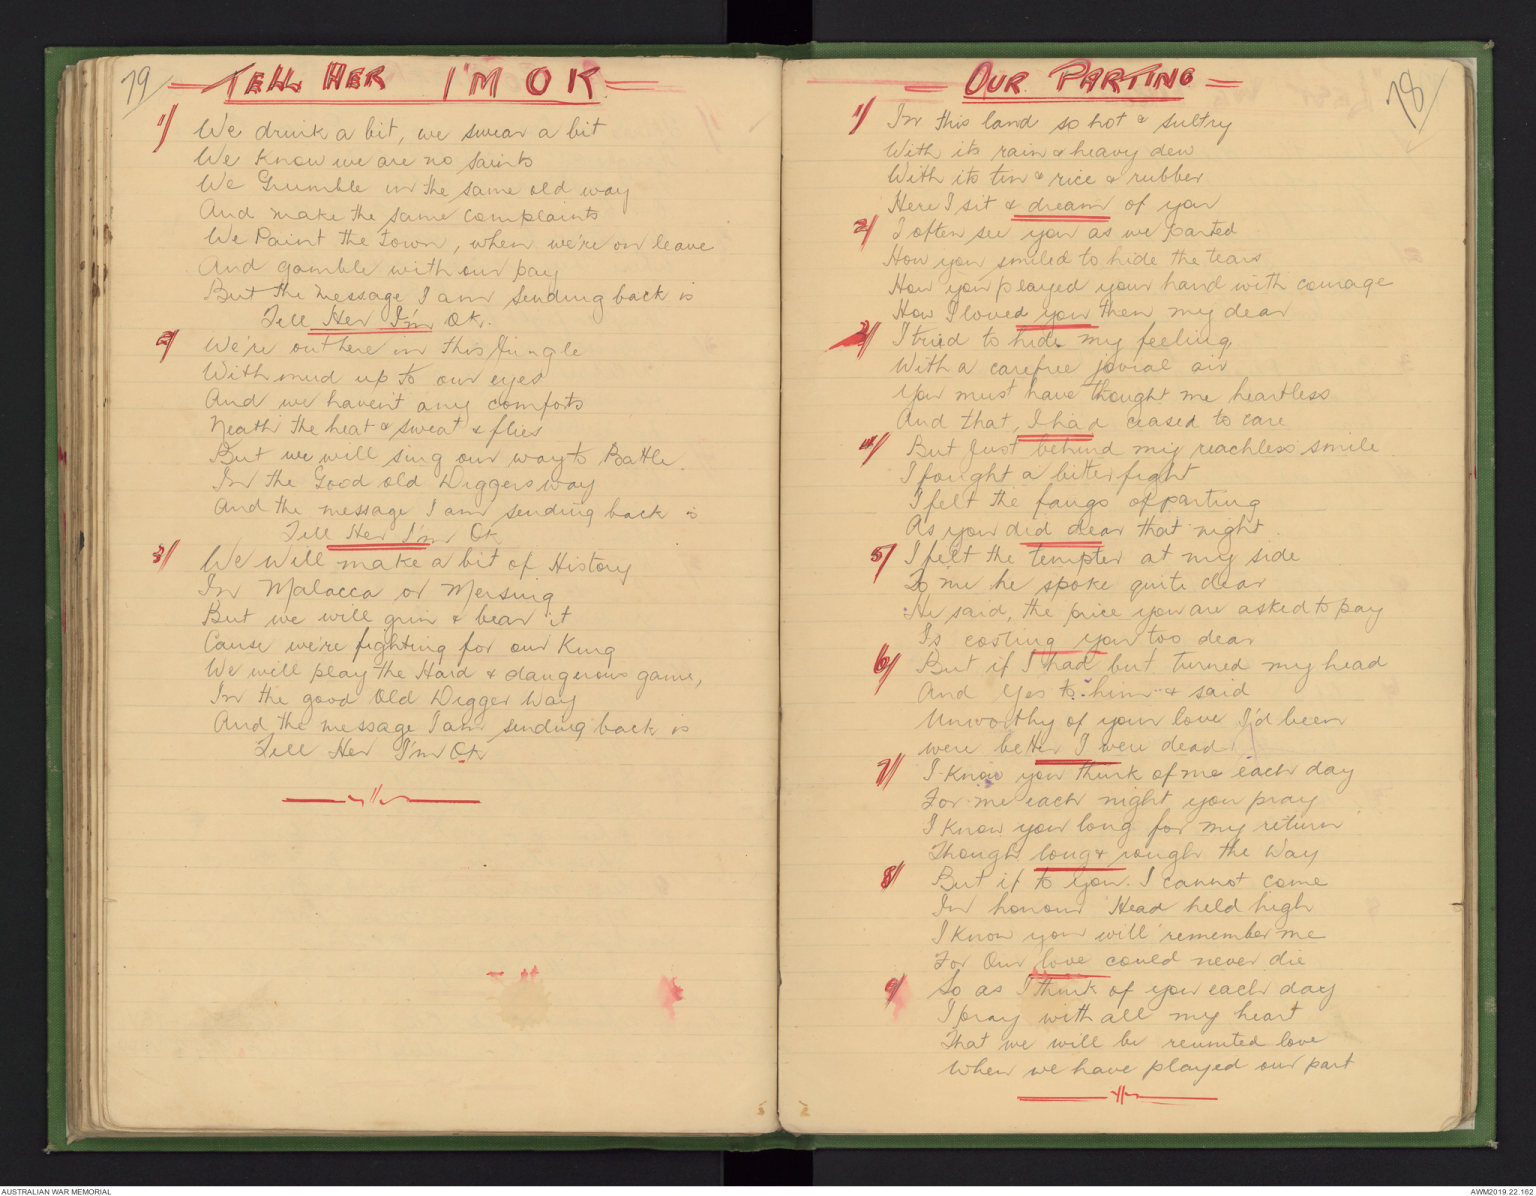 79
TELL HER I'M OK
1/ We drink a bit, we swear a bit
We know we are no saints
We Grumble in the same old way
And make the same complaints
We Paint the town, when we're on leave
And gamble with our pay
But the message I am sending back is
Tell Her I'm Ok.
2/ We're out here in this Jungle
With mud up to our eyes
And we haven't any comforts
Neath the heat & sweat & flies
But we will sing our way to Battle.
In the Good old Diggers way
And the message I am sending back is
Tell Her I'm Ok
3/ We Will make a bit of History
In Malacca or Mersing
But we will grin & bear it
Cause we're fighting for our King
We will play the Hard & dangerous game,
In the good Old Digger Way
And the message I am sending back is
Tell Her I'm Ok
78
OUR PARTING
1/ In this land so hot & sultry
With its rain & heavy dew
With its tin & rice & rubber
Here I sit & dream of you
2/ I often see you as we parted
How you smiled to hide the tears
How you played your hand with courage
How I loved you then my dear
3/ I tried to hide my feeling
With a carefree jovial air
You must have thought me heartless
And that, I had ceased to care
4/ But Just behind my reachless smile
I fought a bitter fight
I felt the fangs of parting
As you did dear that night.
5/ I felt the tempter at my side
To me he spoke quite clear
He said, the price you are asked to pay
Is costing you too dear
6/ But if I had but turned my head
And Yes to him & said
Unworthy of your love I'd been
were better I were dead
7/ I know you think of me each day
For me each night you pray
I know you long for my return
Though long & rough the Way
8/ But if to you I cannot come
In honour Head held high
I know you will remember me
For Our love could never die
9/ So as I think of you each day
I pray with all my heart
That we will be reunited love
When we have played our part
AUSTRALIAN WAR MEMORIAL
AWM2019.22.162